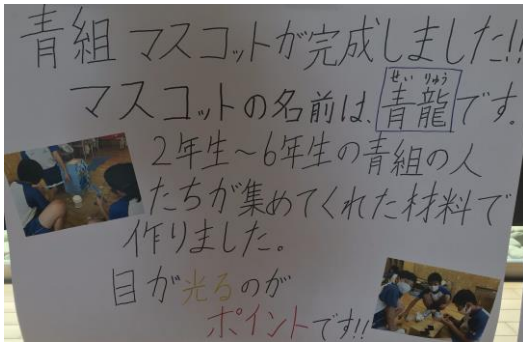 青組 マスコットが完成しました!!
マスコットの名前は、青龍です。
せい りゅう
2年生~6年生の青組の人
たちが集めてくれた材料で
作りました。
目が光るのが
ポイントです!!